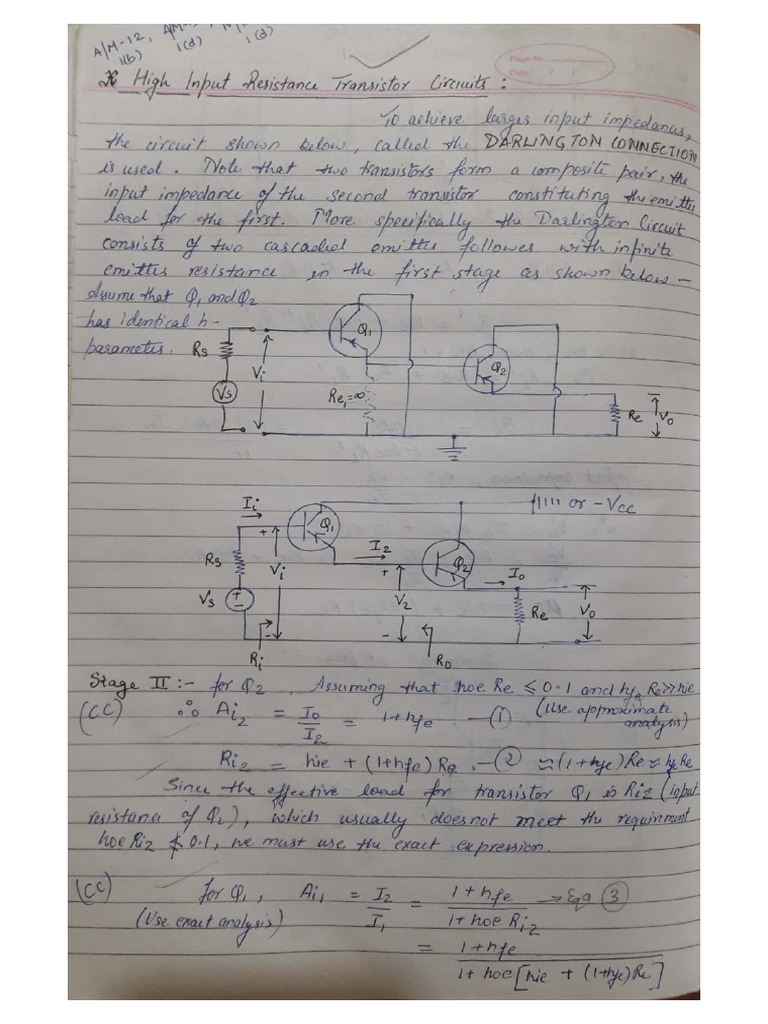 A/M-12, A/M-
1(b) 1(d) 1(d)
Page No.:
Date:
* High Input Resistance Transistor Circuits :
To achieve larges input impedances,
the circuit shown below, called the DARLINGTON CONNECTION
is used. Note that two transistors form a composite pair, the
input impedance of the second transistor constituting the emitter
load for the first. More specifically the Darlington Circuit
consists of two cascaded emitter follower with infinite
emitter resistance in the first stage as shown below -
Assume that Q1 and Q2
has identical h-
parameter.
Rs
Vs
Vi
Q1
Re1=∞
Q2
Re
Vo
Ii
Q1
or -Vcc
Rs
Vs
Vi
I2
Q2
V2
Io
Re
Vo
Ri
Ro
Stage II :- for Q2, Assuming that hoe Re ≤ 0.1 and hfe Re >> hie
(CC) ∴ Ai2 = Io/I2 = 1+hfe —(1) (Use approximate
analysis)
Ri2 = hie + (1+hfe) Re —(2) ≈ (1+hfe) Re ≈ hfe Re
Since the effective load for transistor Q1 is Ri2 (input
resistance of Q2), which usually doesnot meet the requirnment
hoe Ri2 ≰ 0.1, we must use the exact expression.
(CC) for Q1, Ai1 = I2/I1 = (1+hfe)/(1+hoe Ri2) → Eqn (3)
(Use exact analysis)
= (1+hfe)/(1+hoe[hie + (1+hfe)Re])